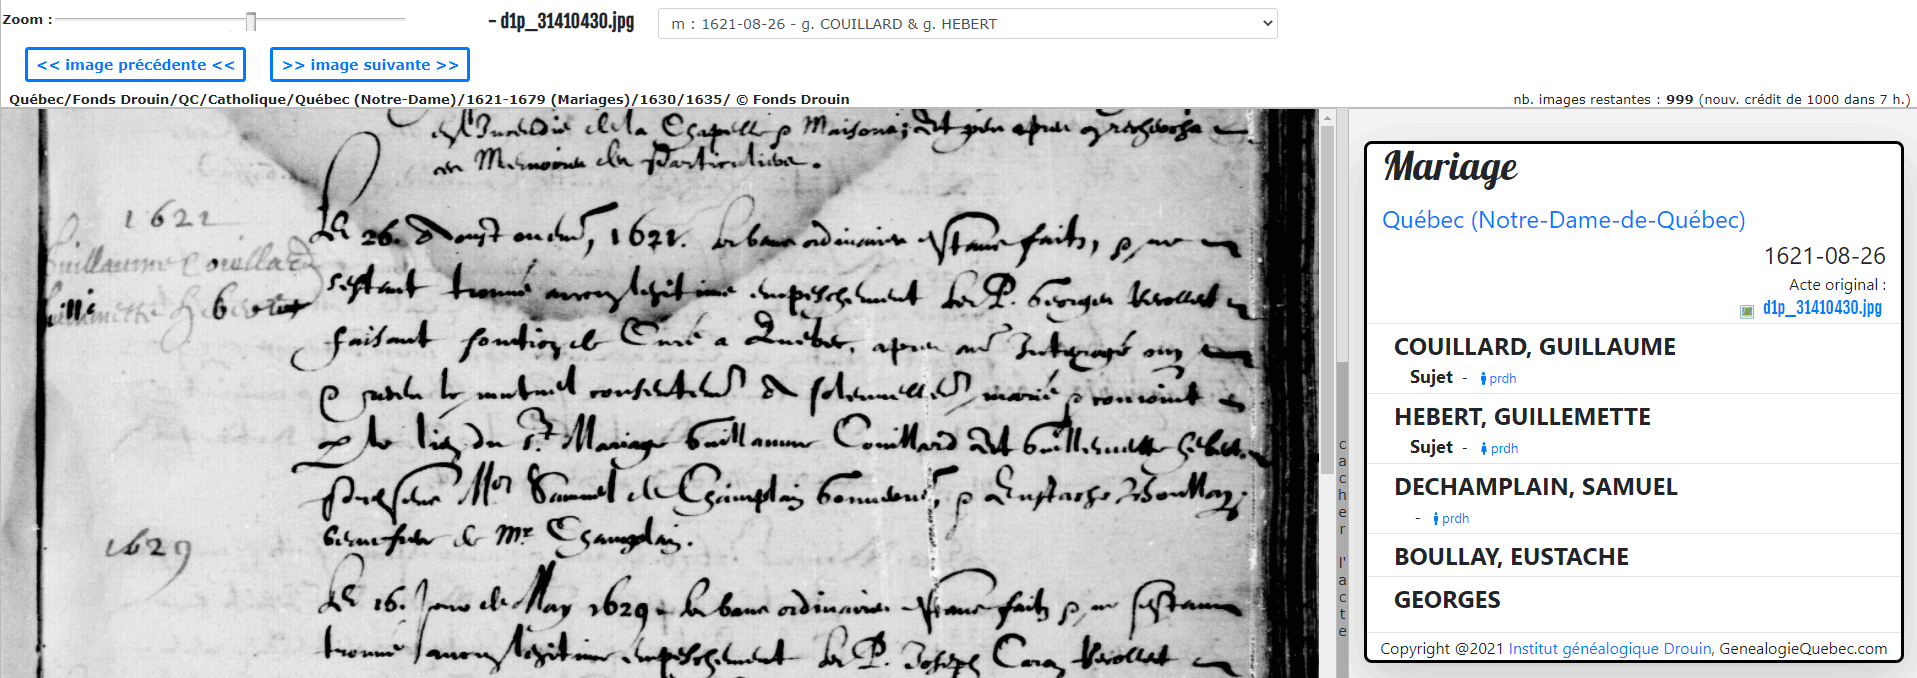 Zoom :
- d1p_31410430.jpg
m : 1621-08-26 - g. COUILLARD & g. HEBERT
<< image précédente <<
>> image suivante >>
Québec/Fonds Drouin/QC/Catholique/Québec (Notre-Dame)/1621-1679 (Mariages)/1630/1635/ © Fonds Drouin
nb. images restantes : 999 (nouv. crédit de 1000 dans 7 h.)
de la Chapelle Maisons; apres
en Memoire de particuliere.
1621
Guillaume Couillard
Guillemette Hebert
Le 26. d'Aoust 1621. les bans ordinaires estans faits, ne
sestant trouvé aucun legitime empeschement le P. Georges
faisant fonction de Curé a Quebec, apres
le mutuel consentem solemnellem marié conioint
lien du St Mariage Guillaume Couillard et Guillemette Hebert.
Samuel de Champlain Eustache Boullay
beau frere de Mr Champlain.
1629
Le 16. Jour de May 1629. les bans ordinaires estans faits ne sestant
trouvé aucun legitime empeschement le P. Joseph Caron
cacher l'acte
Mariage
Québec (Notre-Dame-de-Québec)
1621-08-26
Acte original :
d1p_31410430.jpg
COUILLARD, GUILLAUME
Sujet - prdh
HEBERT, GUILLEMETTE
Sujet - prdh
DECHAMPLAIN, SAMUEL
- prdh
BOULLAY, EUSTACHE
GEORGES
Copyright @2021 Institut généalogique Drouin, GenealogieQuebec.com